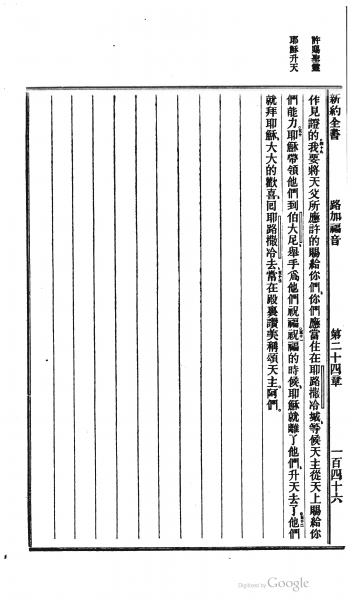 許賜聖靈
耶穌升天
新約全書 路加福音 第二十四章 一百四十六
作見證的、我要將天父所應許的賜給你們、你們應當住在耶路撒冷城、等候天主從天上賜給你
們能力、耶穌帶領他們到伯大尼、舉手爲他們祝福、祝福的時候、耶穌就離了他們、升天去了、他們
就拜耶穌、大大的歡喜、回耶路撒冷去、常在殿裏讚美稱頌天主、阿們。
Digitized by Google